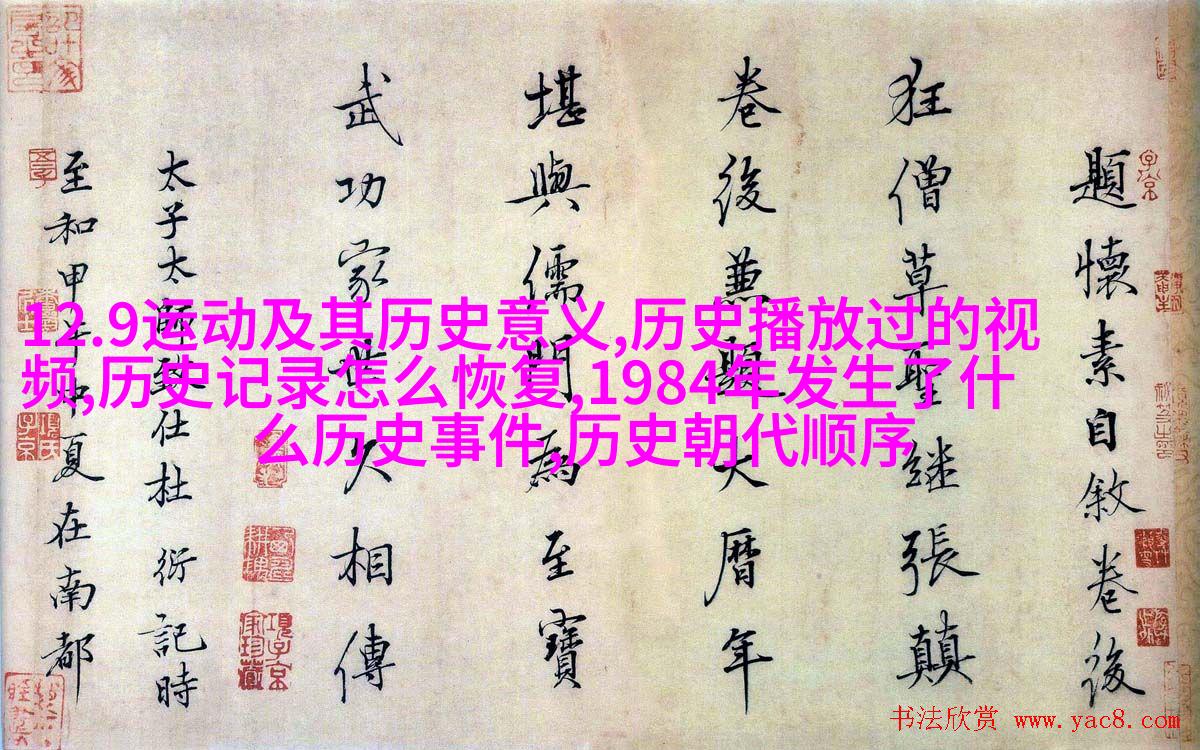 題懷素自敘卷後
狂僧草聖継張顛
卷後兼題大曆年
堪與儒門為至寶
武功家世久相傳
太子太師致仕杜衍記時
至和甲午中夏在南都
12.9运动及其历史意义,历史播放过的视
频,历史记录怎么恢复,1984年发生了什
么历史事件,历史朝代顺序
书法欣赏 www.yac8.com